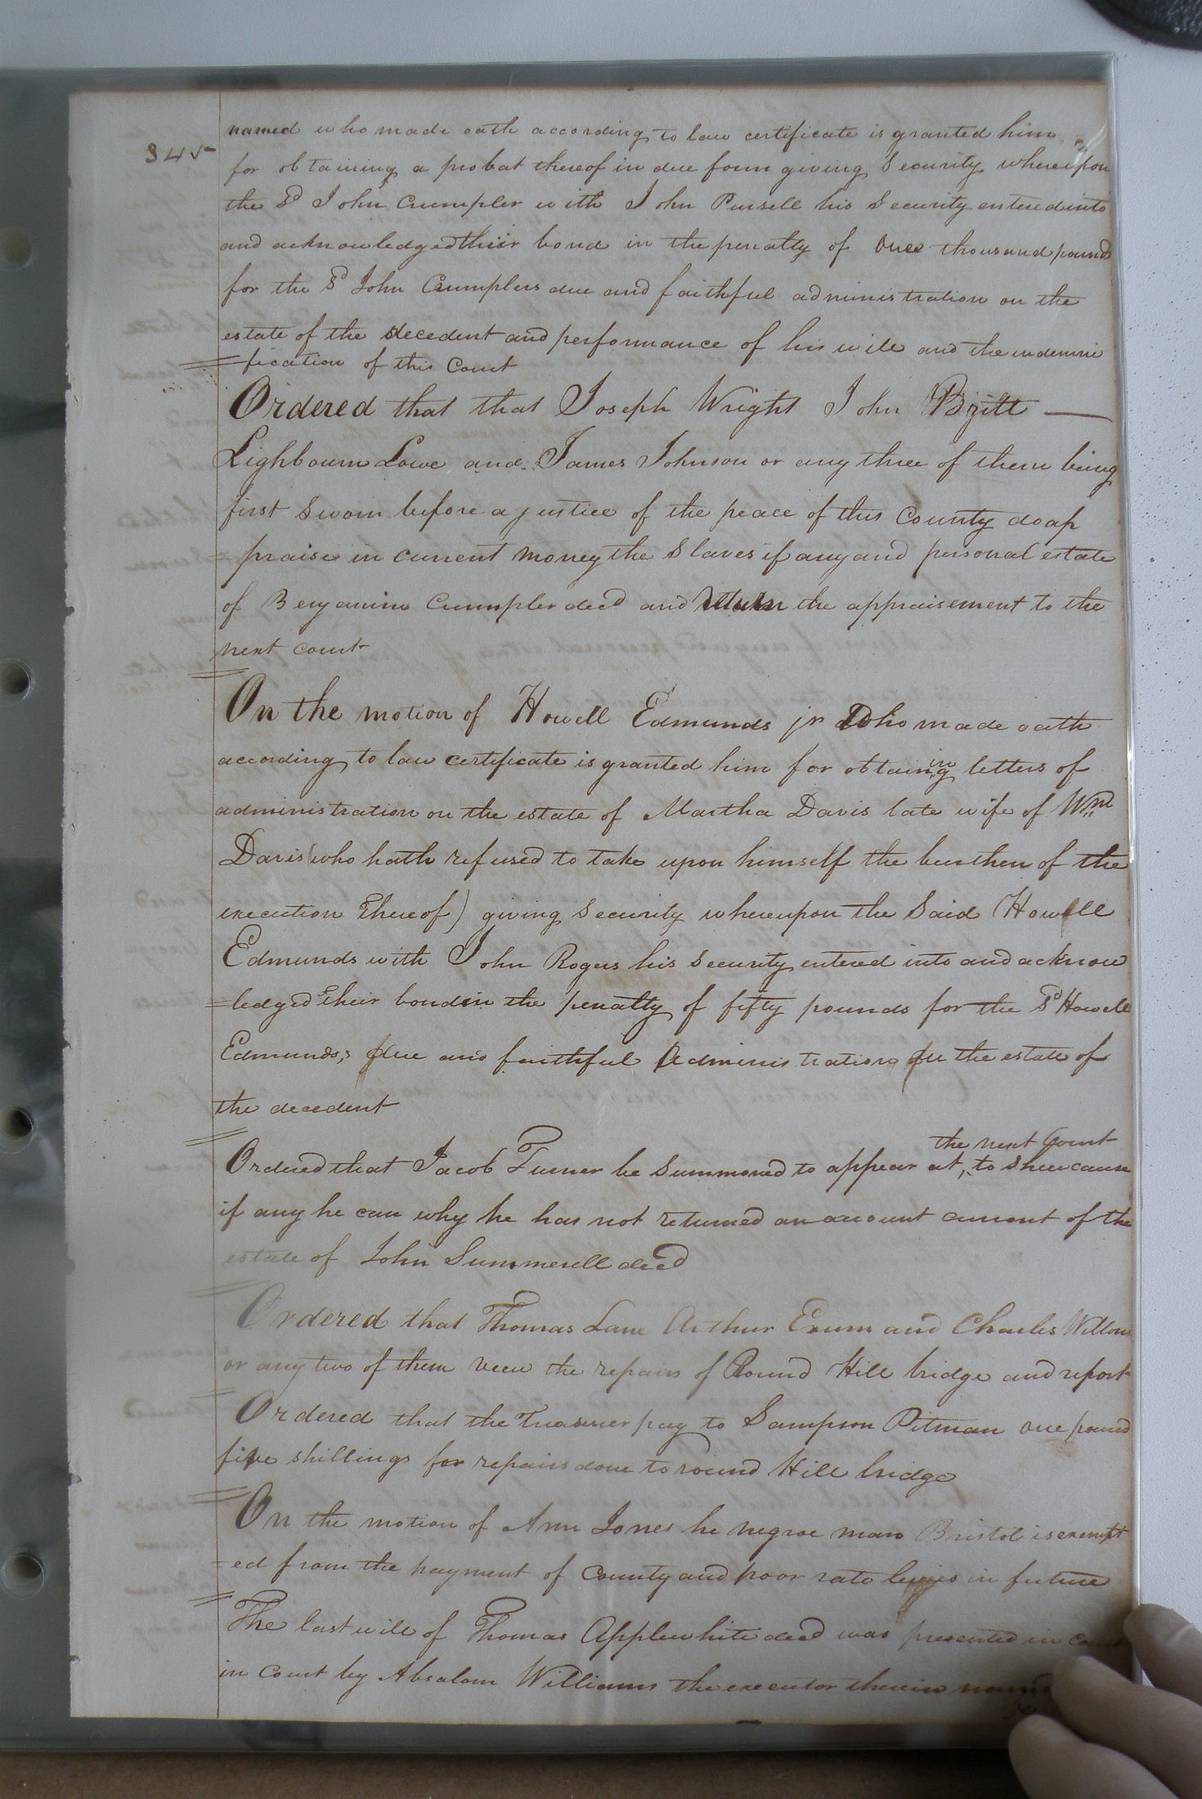 345
named who made oath according to law certificate is granted him
for obtaining a probat thereof in due form giving Security whereupon
the Sd John Crumpler with John Pursell his Security entered into
and acknowledged their bond in the penalty of One thousand pounds
for the Sd John Crumplers due and faithful administration on the
estate of the decedent and performance of his will and the indemni
=fication of this Court
Ordered that that Joseph Wright John Britt —
Lighbourn Lowe and James Johnson or any three of them being
first Sworn before a justice of the peace of this County do ap
=praise in current money the Slaves if any and personal estate
of Benjamin Crumpler decd and return the appraisement to the
next court
On the motion of Howell Edmunds jr Who made oath
according to law certificate is granted him for obtaining letters of
administration on the estate of Martha Davis late wife of Wm
Davis (who hath refused to take upon himself the burthen of the
execution thereof) giving Security whereupon the Said Howell
Edmunds with John Rogers his Security entered into and acknow
=ledged their bond in the penalty of fifty pounds for the Sd Howell
Edmunds,s due and faithful Administration on the estate of
the decedent
the next Court
Ordered that Jacob Turner be Summoned to appear at, to Shew cause
if any he can why he has not returned an account current of the
estate of John Summerell decd
Ordered that Thomas Lane Arthur Exum and Charles
or any two of them view the repairs of Round Hill bridge and report
Ordered that the Treasurer pay to Sampson Pitman one pound
five shillings for repairs done to round Hill bridge
On the motion of Ann Jones he negroe man Bristol is exempt
=ed from the payment of County and poor rate levies in future
The last will of Thomas Applewhite decd was presented in Court
in Court by Absalom Williams the executor therein named